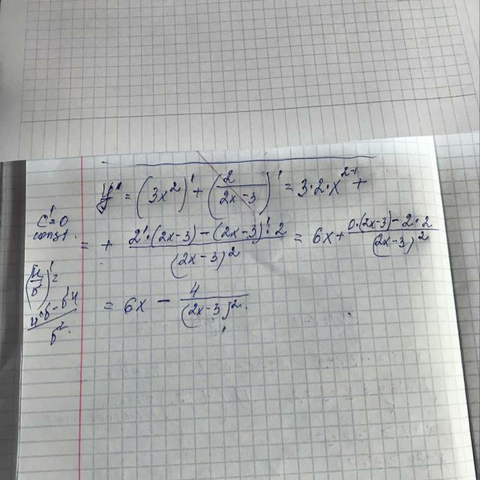 y' = (3x²)' + (2/(2x-3))' = 3·2·x²⁻¹ +
C'=0
const.
= + (2'·(2x-3) - (2x-3)'·2)/(2x-3)² = 6x + (0·(2x-3) - 2·2)/(2x-3)²
(u/v)' =
(u'v - v'u)/v²
= 6x - 4/(2x-3)².